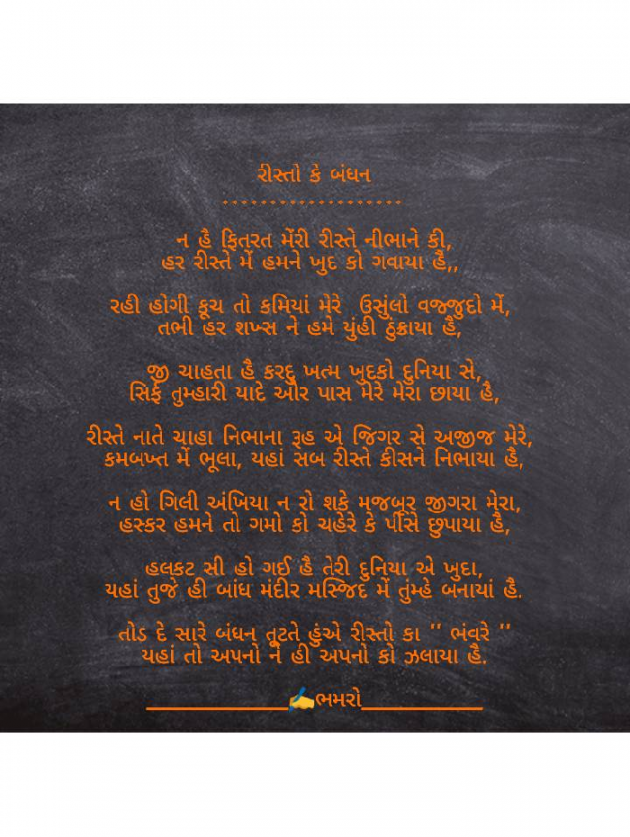 રીસ્તો કે બંધન
- - - - - - - - - - - - - - - - - - -
ન હૈ ફિતરત મેંરી રીસ્તે નીભાને કી,
હર રીસ્તે મેં હમને ખુદ કો ગવાયા હૈ,,
રહી હોગી કૂચ તો કમિયાં મેરે ઉસુંલો વજ્જુદો મેં,
તભી હર શખ્સ ને હમેં યુંહી ઠુંક્રાયા હૈ,
જી ચાહતા હૈ કરદુ ખત્મ ખુદકો દુનિયા સે,
સિર્ફ તુમ્હારી યાદે ઓર પાસ મેરે મેરા છાયા હૈ,
રીસ્તે નાતે ચાહા નિભાના રૂહ એ જિગર સે અજીજ મેરે,
કમબખ્ત મેં ભૂલા, યહાં સબ રીસ્તે કીસને નિભાયા હૈ,
ન હો ગિલી અંખિયા ન રો શકે મજબૂર જીગરા મેરા,
હસ્કર હમને તો ગમો કો ચહેરે કે પીસે છુપાયા હૈ,
હલકટ સી હો ગઈ હૈ તેરી દુનિયા એ ખુદા,
યહાં તુજે હી બાંધ મંદીર મસ્જિદ મેં તુંમ્હે બનાયાં હૈ.
તોડ દે સારે બંધન તૂટતે હુંએ રીસ્તો કા '' ભંવરે ''
યહાં તો અપનો ને હી અપનો કો ઝલાયા હૈ.
____________✍️ભમરો__________